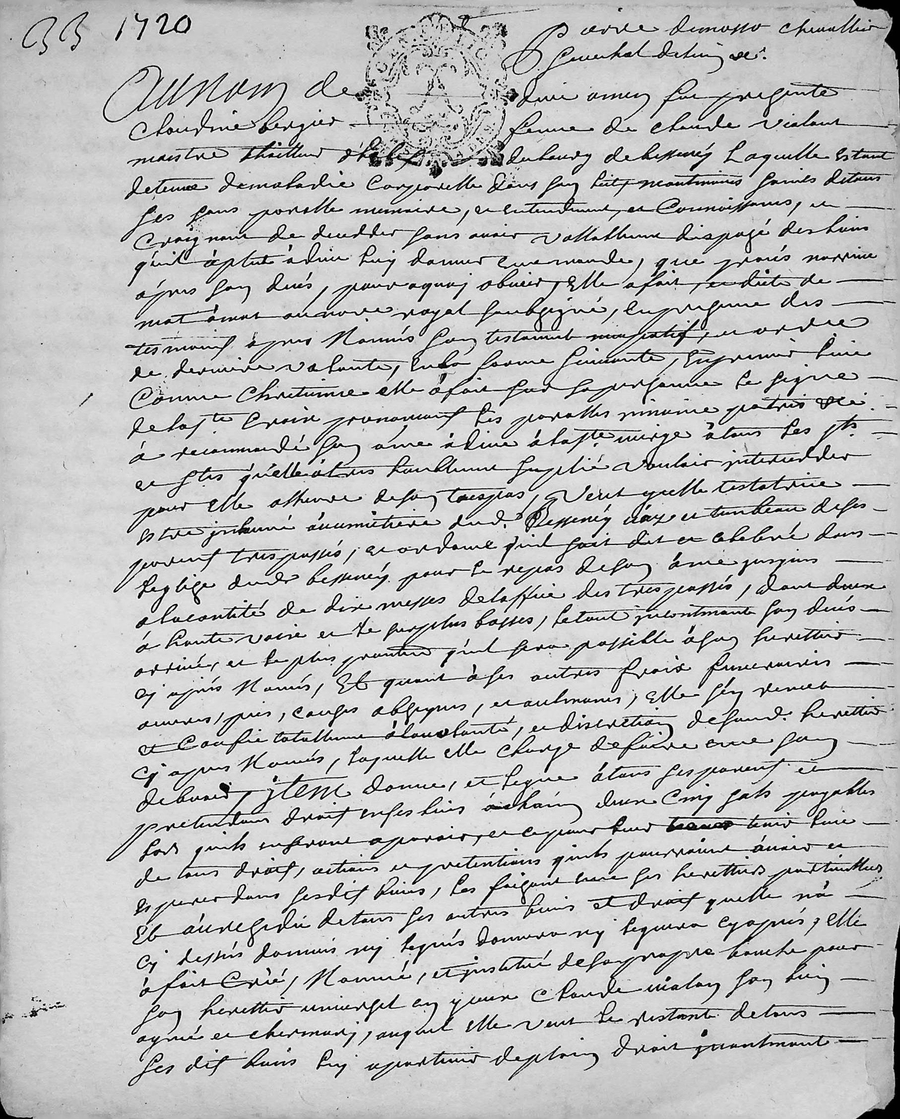 33 1720
Pierre chevallier
Au Nom de dieu amen fut presente
Claudine bergier femme de claude vialon
maistre thailleur d'habits du bourg de bessenay Laquelle estant
detenue de maladie Corporelle dans son lict, neantmoins saine de tous
ses sens parolle memoire, et entendement, et Connoissance, et
Craignant de decedder sans avoir vallablement dispozé des biens
qu'il à plut à dieu luy donner en ce monde, que procès n'arrive
apres son decés, pour à quoy obvier, Elle a fait, et dicté de
mot à mot au no.re royal soubsigné, En presence des
tesmoins apres Nommés son testament nuncupatif, et ordre
de derniere volonté, En la forme suivante, En premier lieu
Comme Chretienne elle à fait sur sa personne le signe
de la ste Croix prononceant les parolles in nomine patris &c.
à recommandé son ame à dieu à la ste vierge à tous les sts.
et stes qu'elle a tres humblement supplié vouloir intercedder
pour Elle a l'heure de son trespas, Veut quelle testatrice
Estre inhumé au cimetière dud. Bessenay et tombeau de ses
parens trespassés, et ordonne qu'il soit dit et celebré dans
l'eglise dud. bessenay pour le repos de son ame jusques
a la cantité de dix messes de l'office des trespassés, dont deux
à haute voix et le surplus basses, le tout incontinant son decés
arrivé, et le plus promtem qu'il sera possible à son herettier
cy après Nommé, Et quant à ses autres frais funeraires
œuvres, pies, obseques, et aulmones, Elle s'en remet
et Confie totallem à la volonté, et discretion de sond. herettier
Cy apres Nommé, laquelle elle charge de faire avec son
debvoir, jtem donne, et legue à tous ses parens et
pretendans droit en ses biens à chaun deux Cinq sols payables
lors quils en feront aparoir, et ce pour leur tenir lieu
de tous droits, actions et pretentions qu'ils pourroient avoir et
esperer dans sesdits biens, les faisant en ce ses herettiers particulliers
Et au regard de tous ses autres biens et droits quelle n'a
cy dessus donnés ny legués donnera ny leguera cyaprés, Elle
à fait Créé, Nommé, et institué de sa propre bouche pour
son herettier universel Claude vialon son bien
aymé et cher mary, auquel elle veut le restant de tous
ses dits biens luy apartenir de plain droit jncontinant